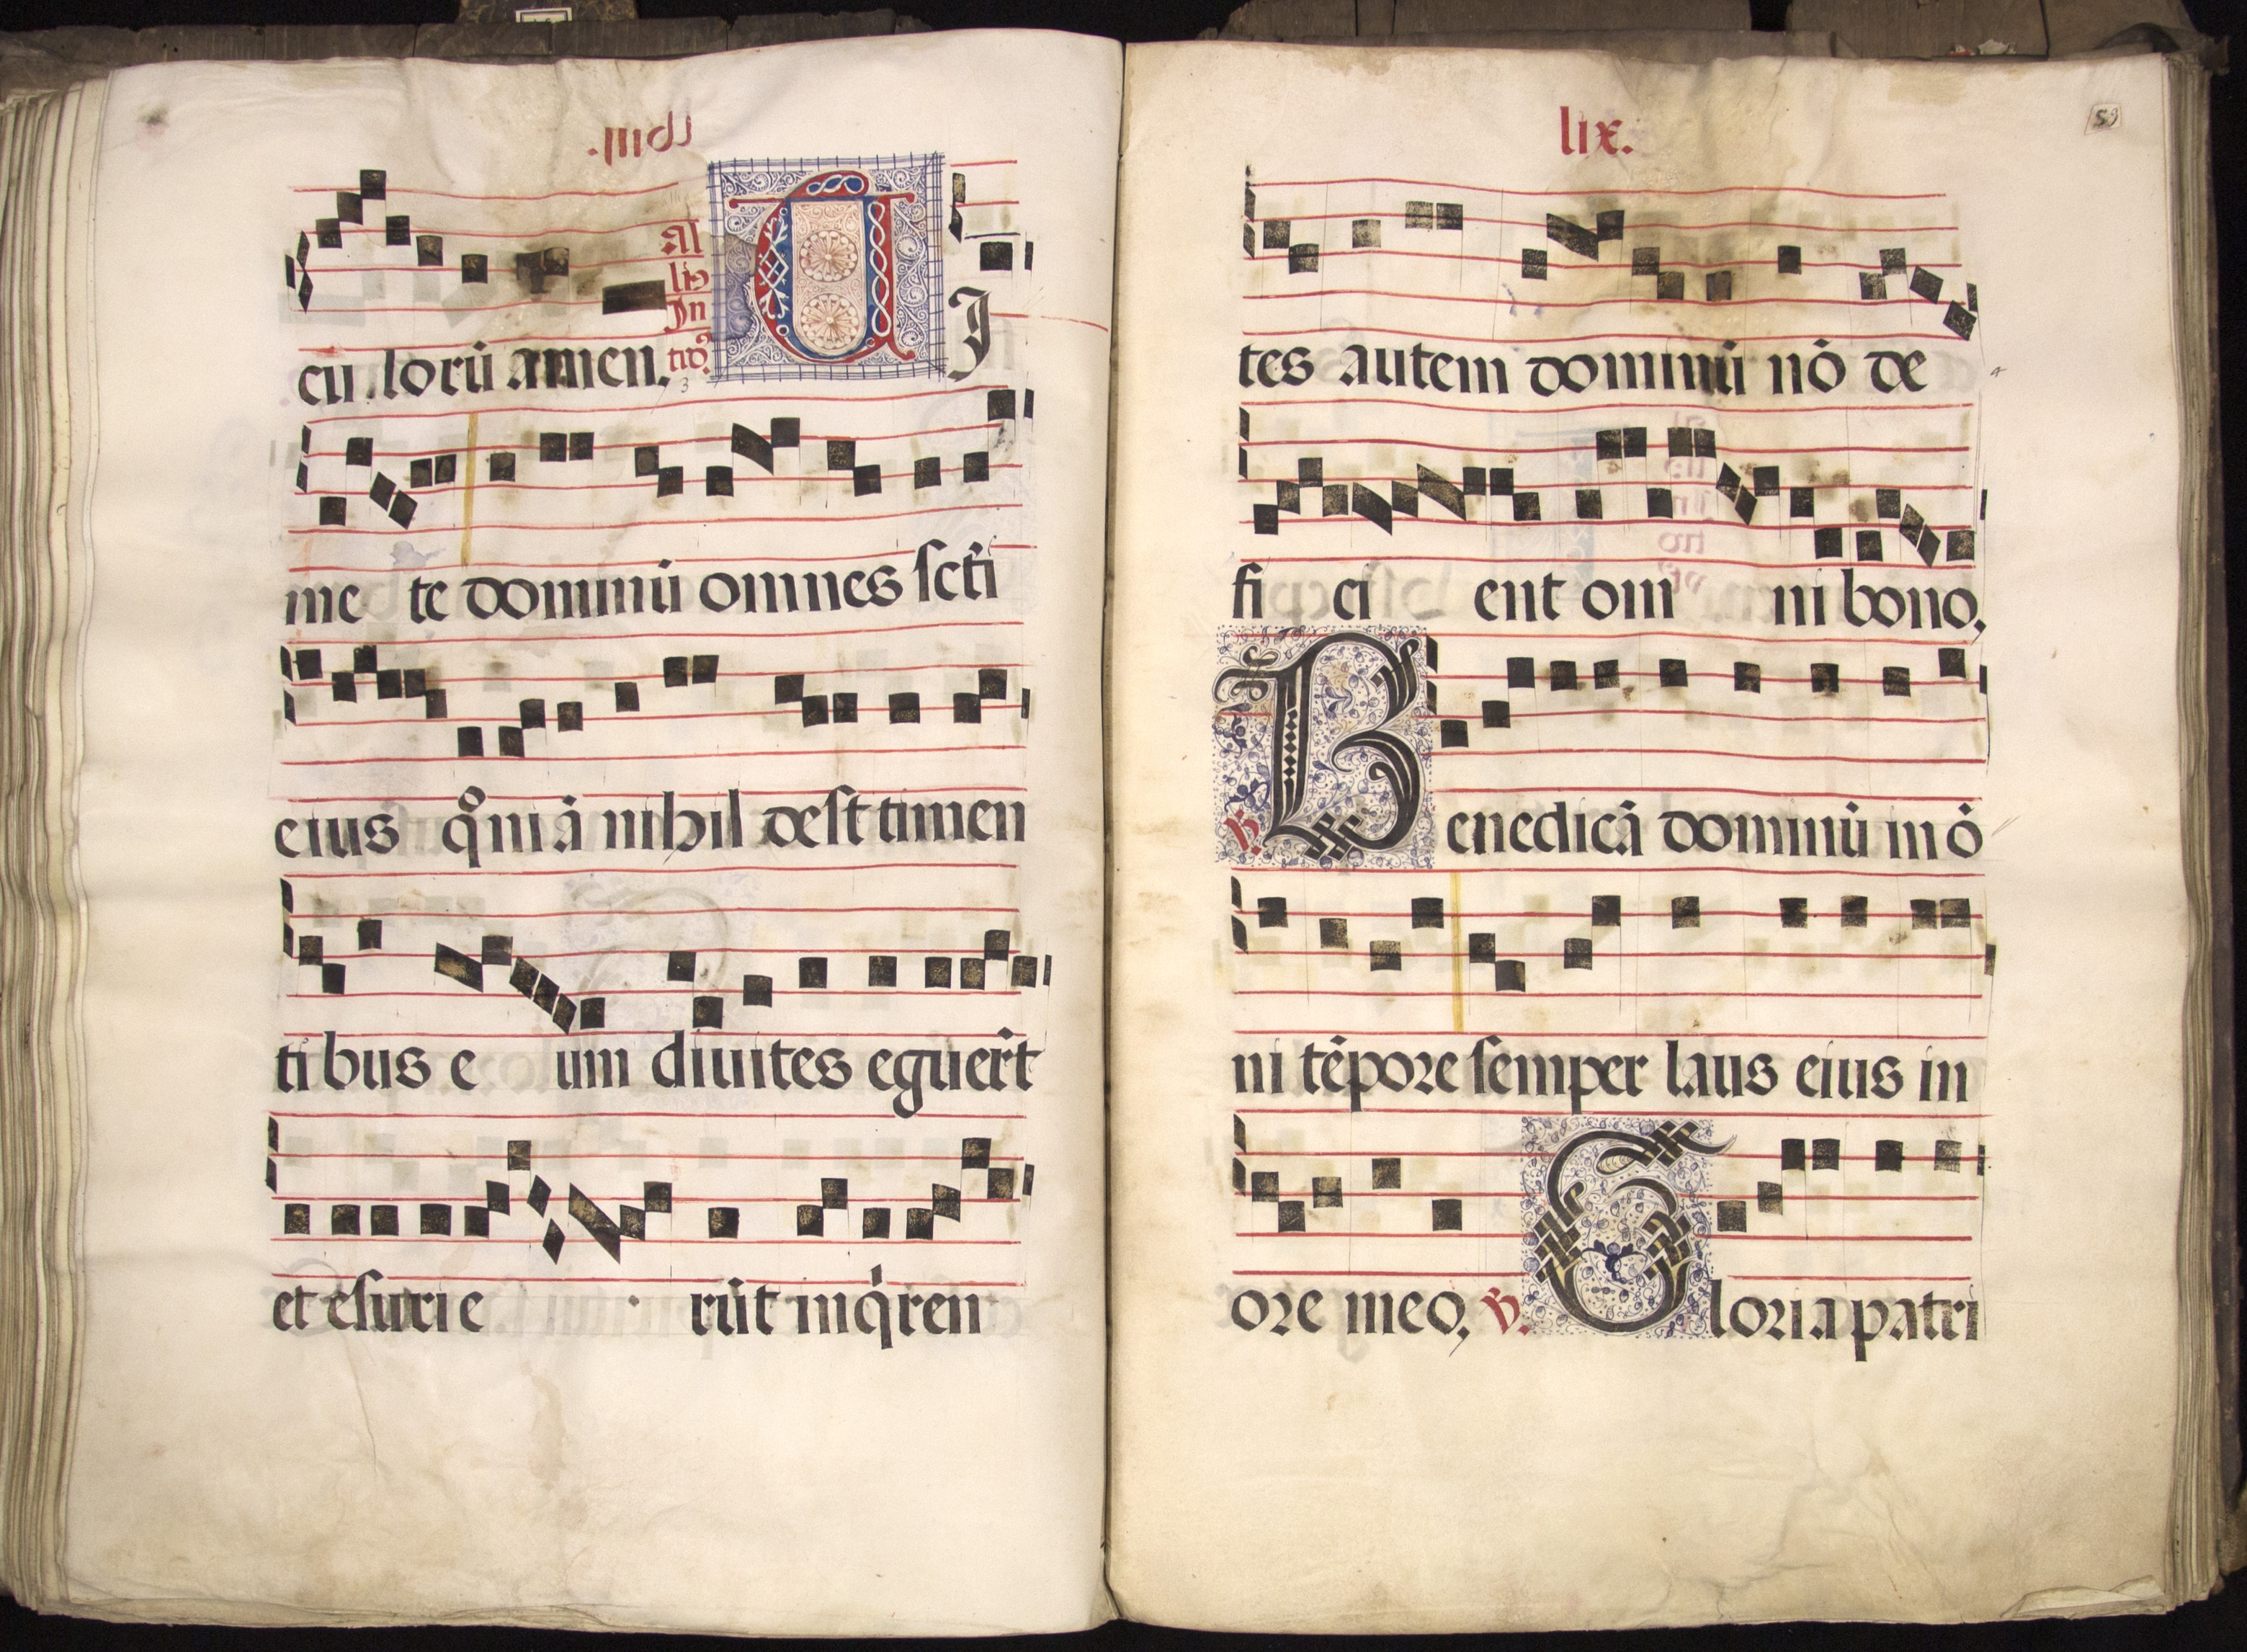 lviii.
culorū amen.
al
lis
In
tro⁹
T I
me te dominū omnes sct̄i
eius qm̊ iā nihil deſt timen
tibus e um diuites eguer̄t
et eſuri e rūt inq̇ren
lix.
59
tes autem dominū nō de
fi ci ent om ni bono,
℟.
Benedicā dominū in ō
ni tēpore ſemper laus eius in
ore meo, ℣. Gloria patri